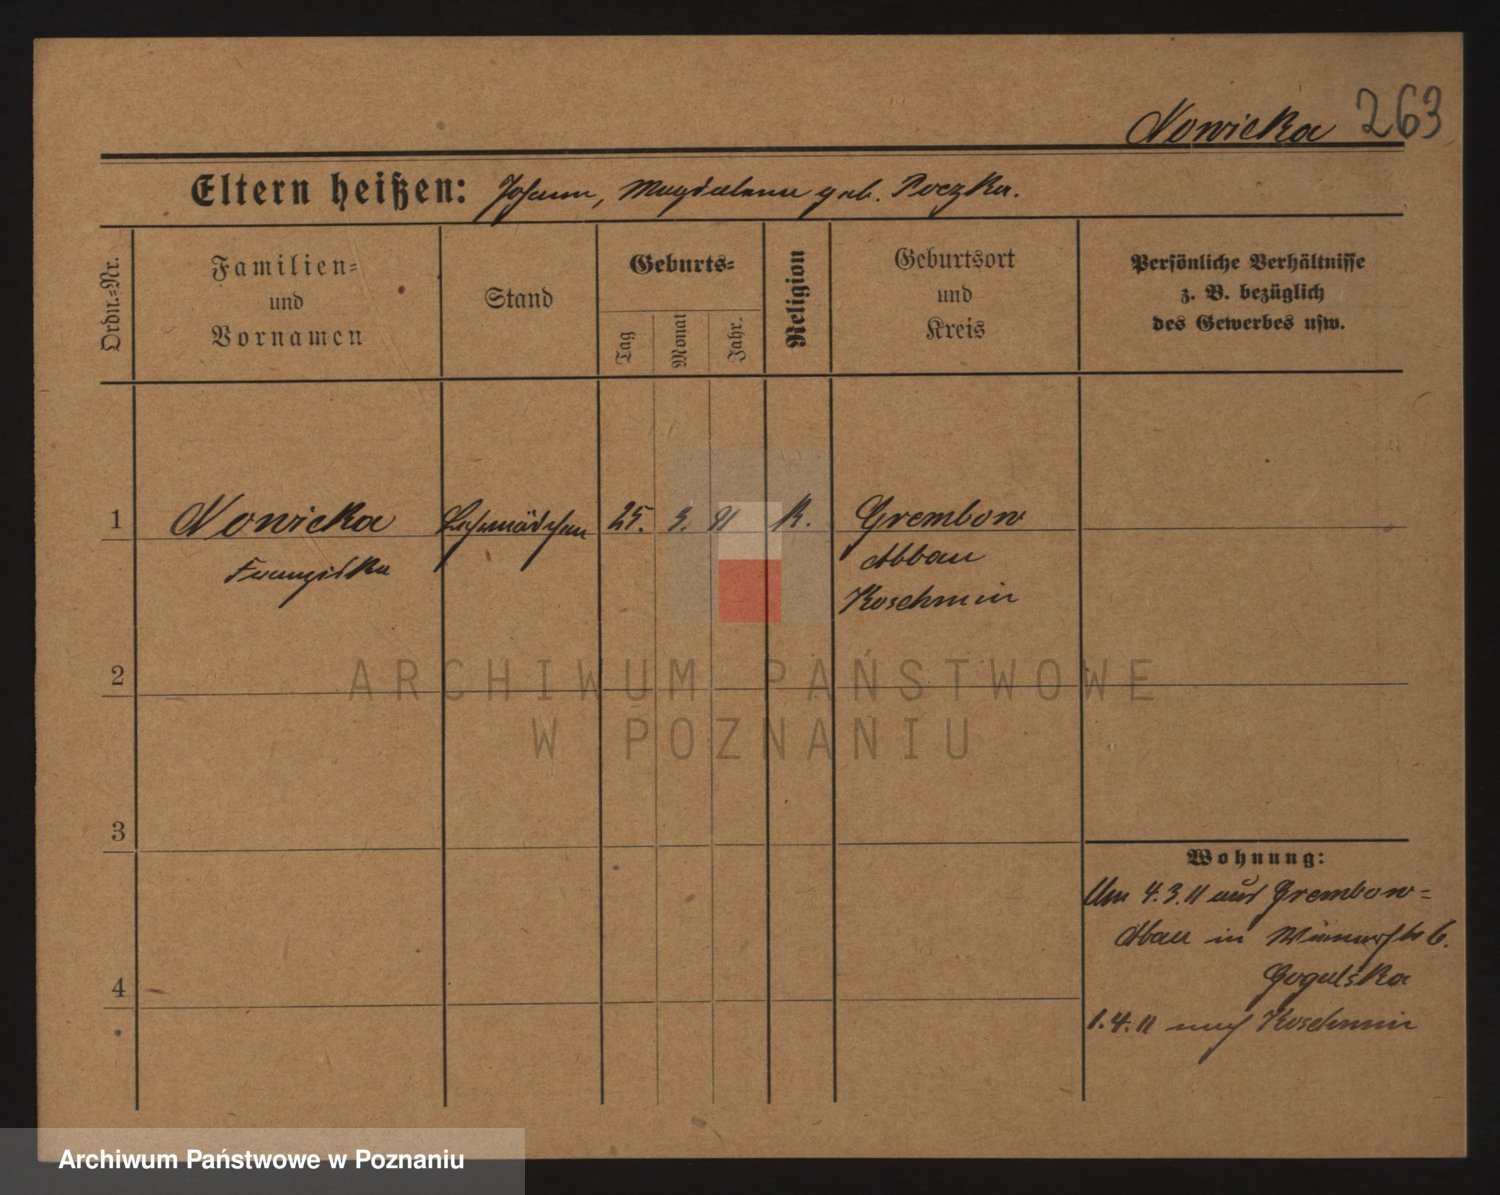 Nowicka 263
Eltern heißen: Johann, Magdalena geb. Poczka.
Ordn.-Nr.
Familien-
und
Vornamen
Stand
Geburts-
Tag
Monat
Jahr.
Religion
Geburtsort
und
Kreis
Persönliche Verhältnisse
z. B. bezüglich
des Gewerbes usw.
1 Nowicka 25. 9. 91 K. Grembow
Franziska Abbau
Koschmin
2
3
4
Wohnung:
Um 4.3.11 aus Grembow-
Abau in b.
Gogulska
1.4.11 nach Koschmin
ARCHIWUM PAŃSTWOWE
W POZNANIU
Archiwum Państwowe w Poznaniu